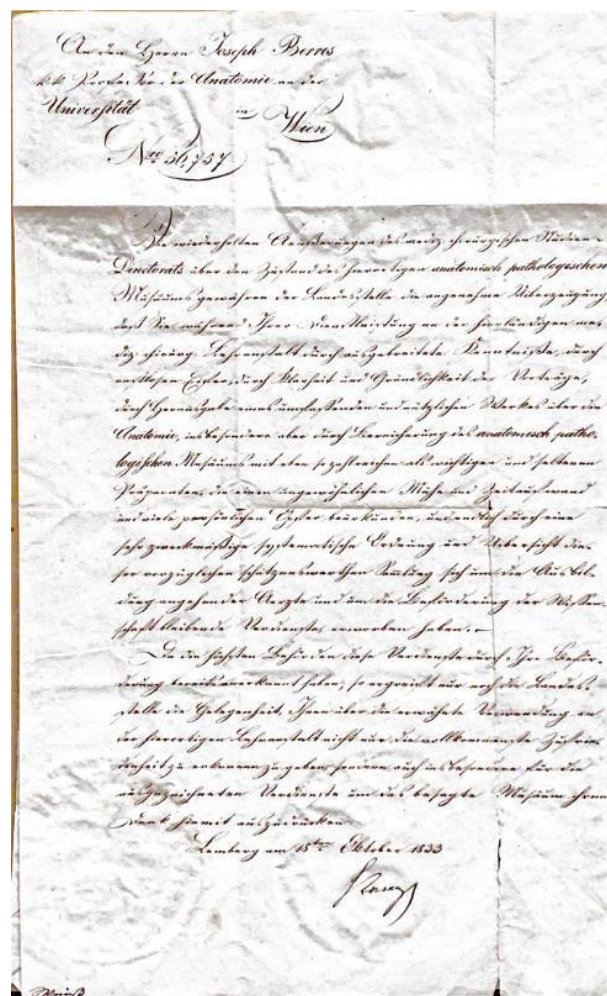 An den Herrn Joseph Berres
k.k. Professor der Anatomie an der
Universität in Wien
Nro 56,757
Die wiederholten Aeußerungen des mediz. chirurgischen Studien-
Directorats über den Zustand des hierortigen anatomisch pathologischen
Musäums gewähren der Landesstelle die angenehme Uiberzeugung
daß Sie während Ihrer Dienstleistung an der hierländigen me-
diz. chirurg. Lehranstalt durch ausgebreitete Kenntniße, durch
rastlosen Eifer, durch Klarheit und Gründlichkeit der Vorträge,
durch Herausgabe eines umfassenden und nützlichen Werkes über die
Anatomie, insbesondere aber durch Bereicherung des anatomisch patho-
logischen Musäums mit eben so zahlreichen als wichtigen und seltenen
Präparaten, die einen ungewöhnlichen Mühe und Zeitaufwand
und viele persönlichen Opfer beurkunden, und endlich durch eine
sehr zweckmäßige systematische Ordnung und Uibersicht die-
ser vorzüglichen schätzenswerthen Samlung sich um die Ausbil-
dung angehender Aerzte und um die Beförderung der Wissen-
schaft bleibende Verdienste erworben haben.
Da die höchsten Behörden diese Verdienste durch Ihre Beför-
derung bereits anerkannt haben; so ergreift nur noch die Landes-
stelle die Gelegenheit, Ihnen über die erwähnte Verwendung an
der hierortigen Lehranstalt nicht nur die vollkommenste Zufrie-
denheit zu erkennen zu geben, sondern auch insbesondere für die
ausgezeichneten Verdienste um das besagte Musäum ihren
Dank hiemit auszudrücken.
Lemberg am 18ten Oktober 1833